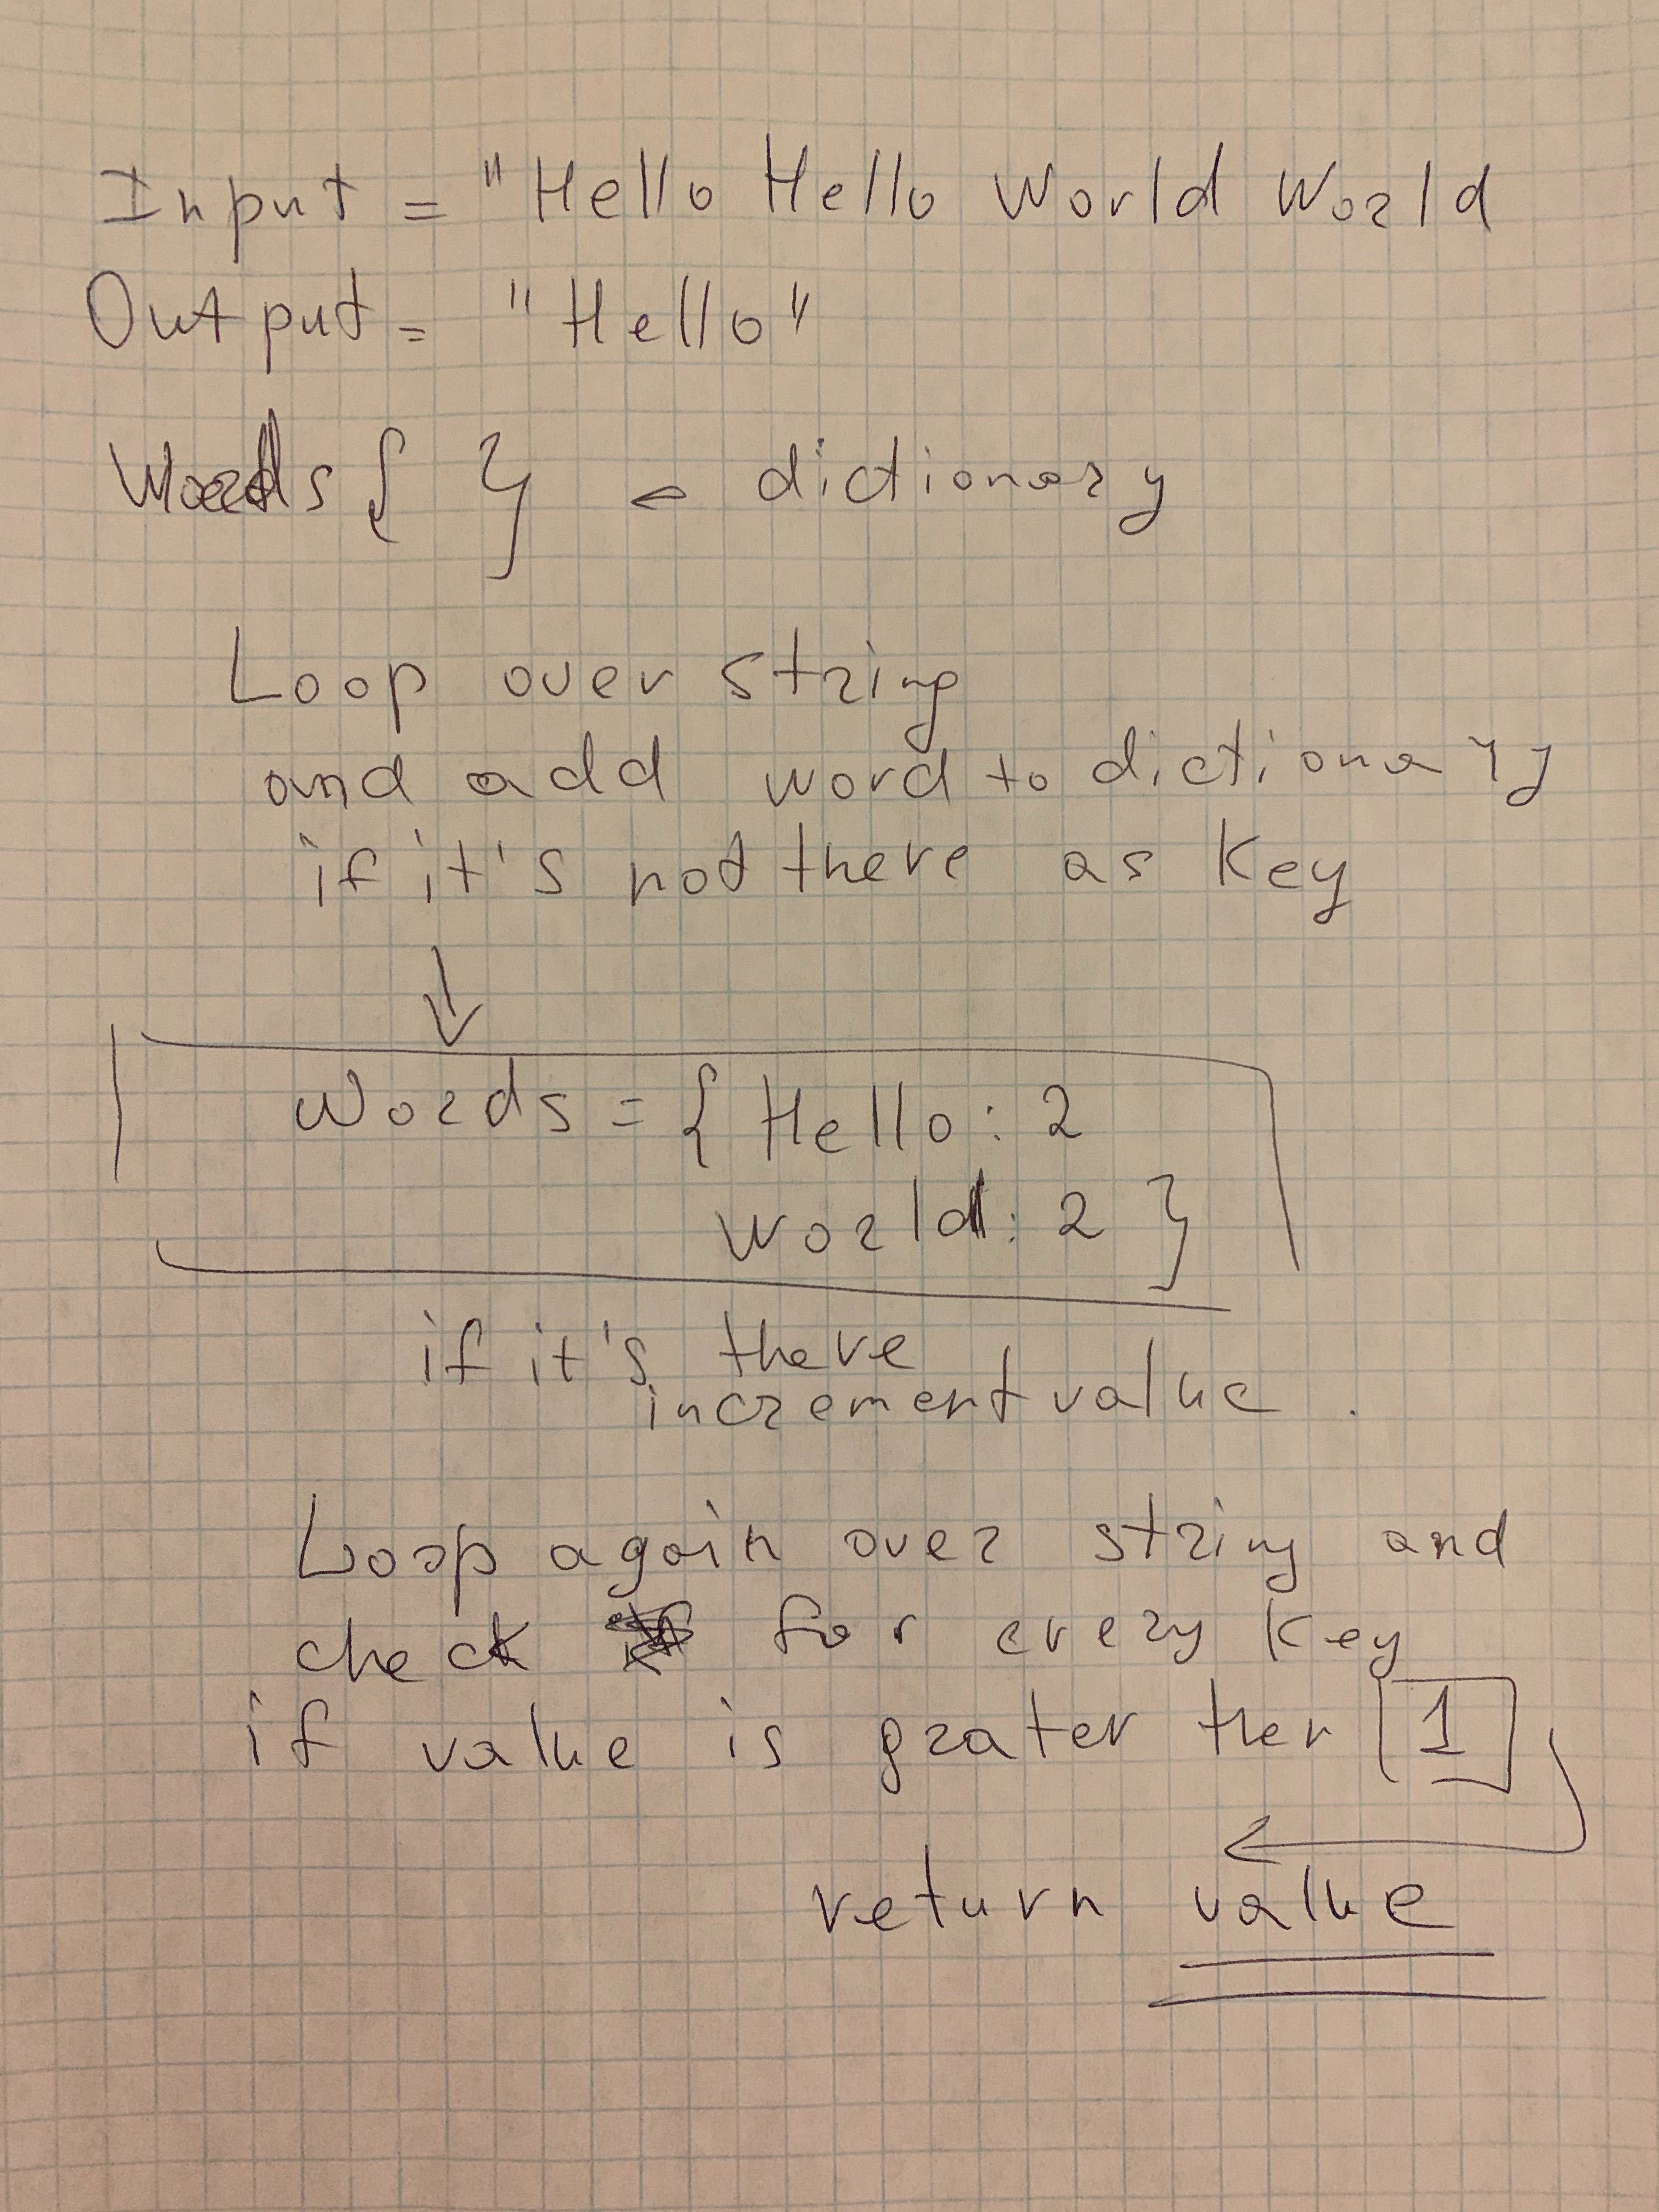 Input = "Hello Hello World World
Output = "Hello"
Words { } ← dictionary
Loop over string
and add word to dictionary
if it's not there as key
↓
Words = { Hello: 2
World: 2 }
if it's there
increment value.
Loop again over string and
check for every key
if value is grater ther [1]
return value